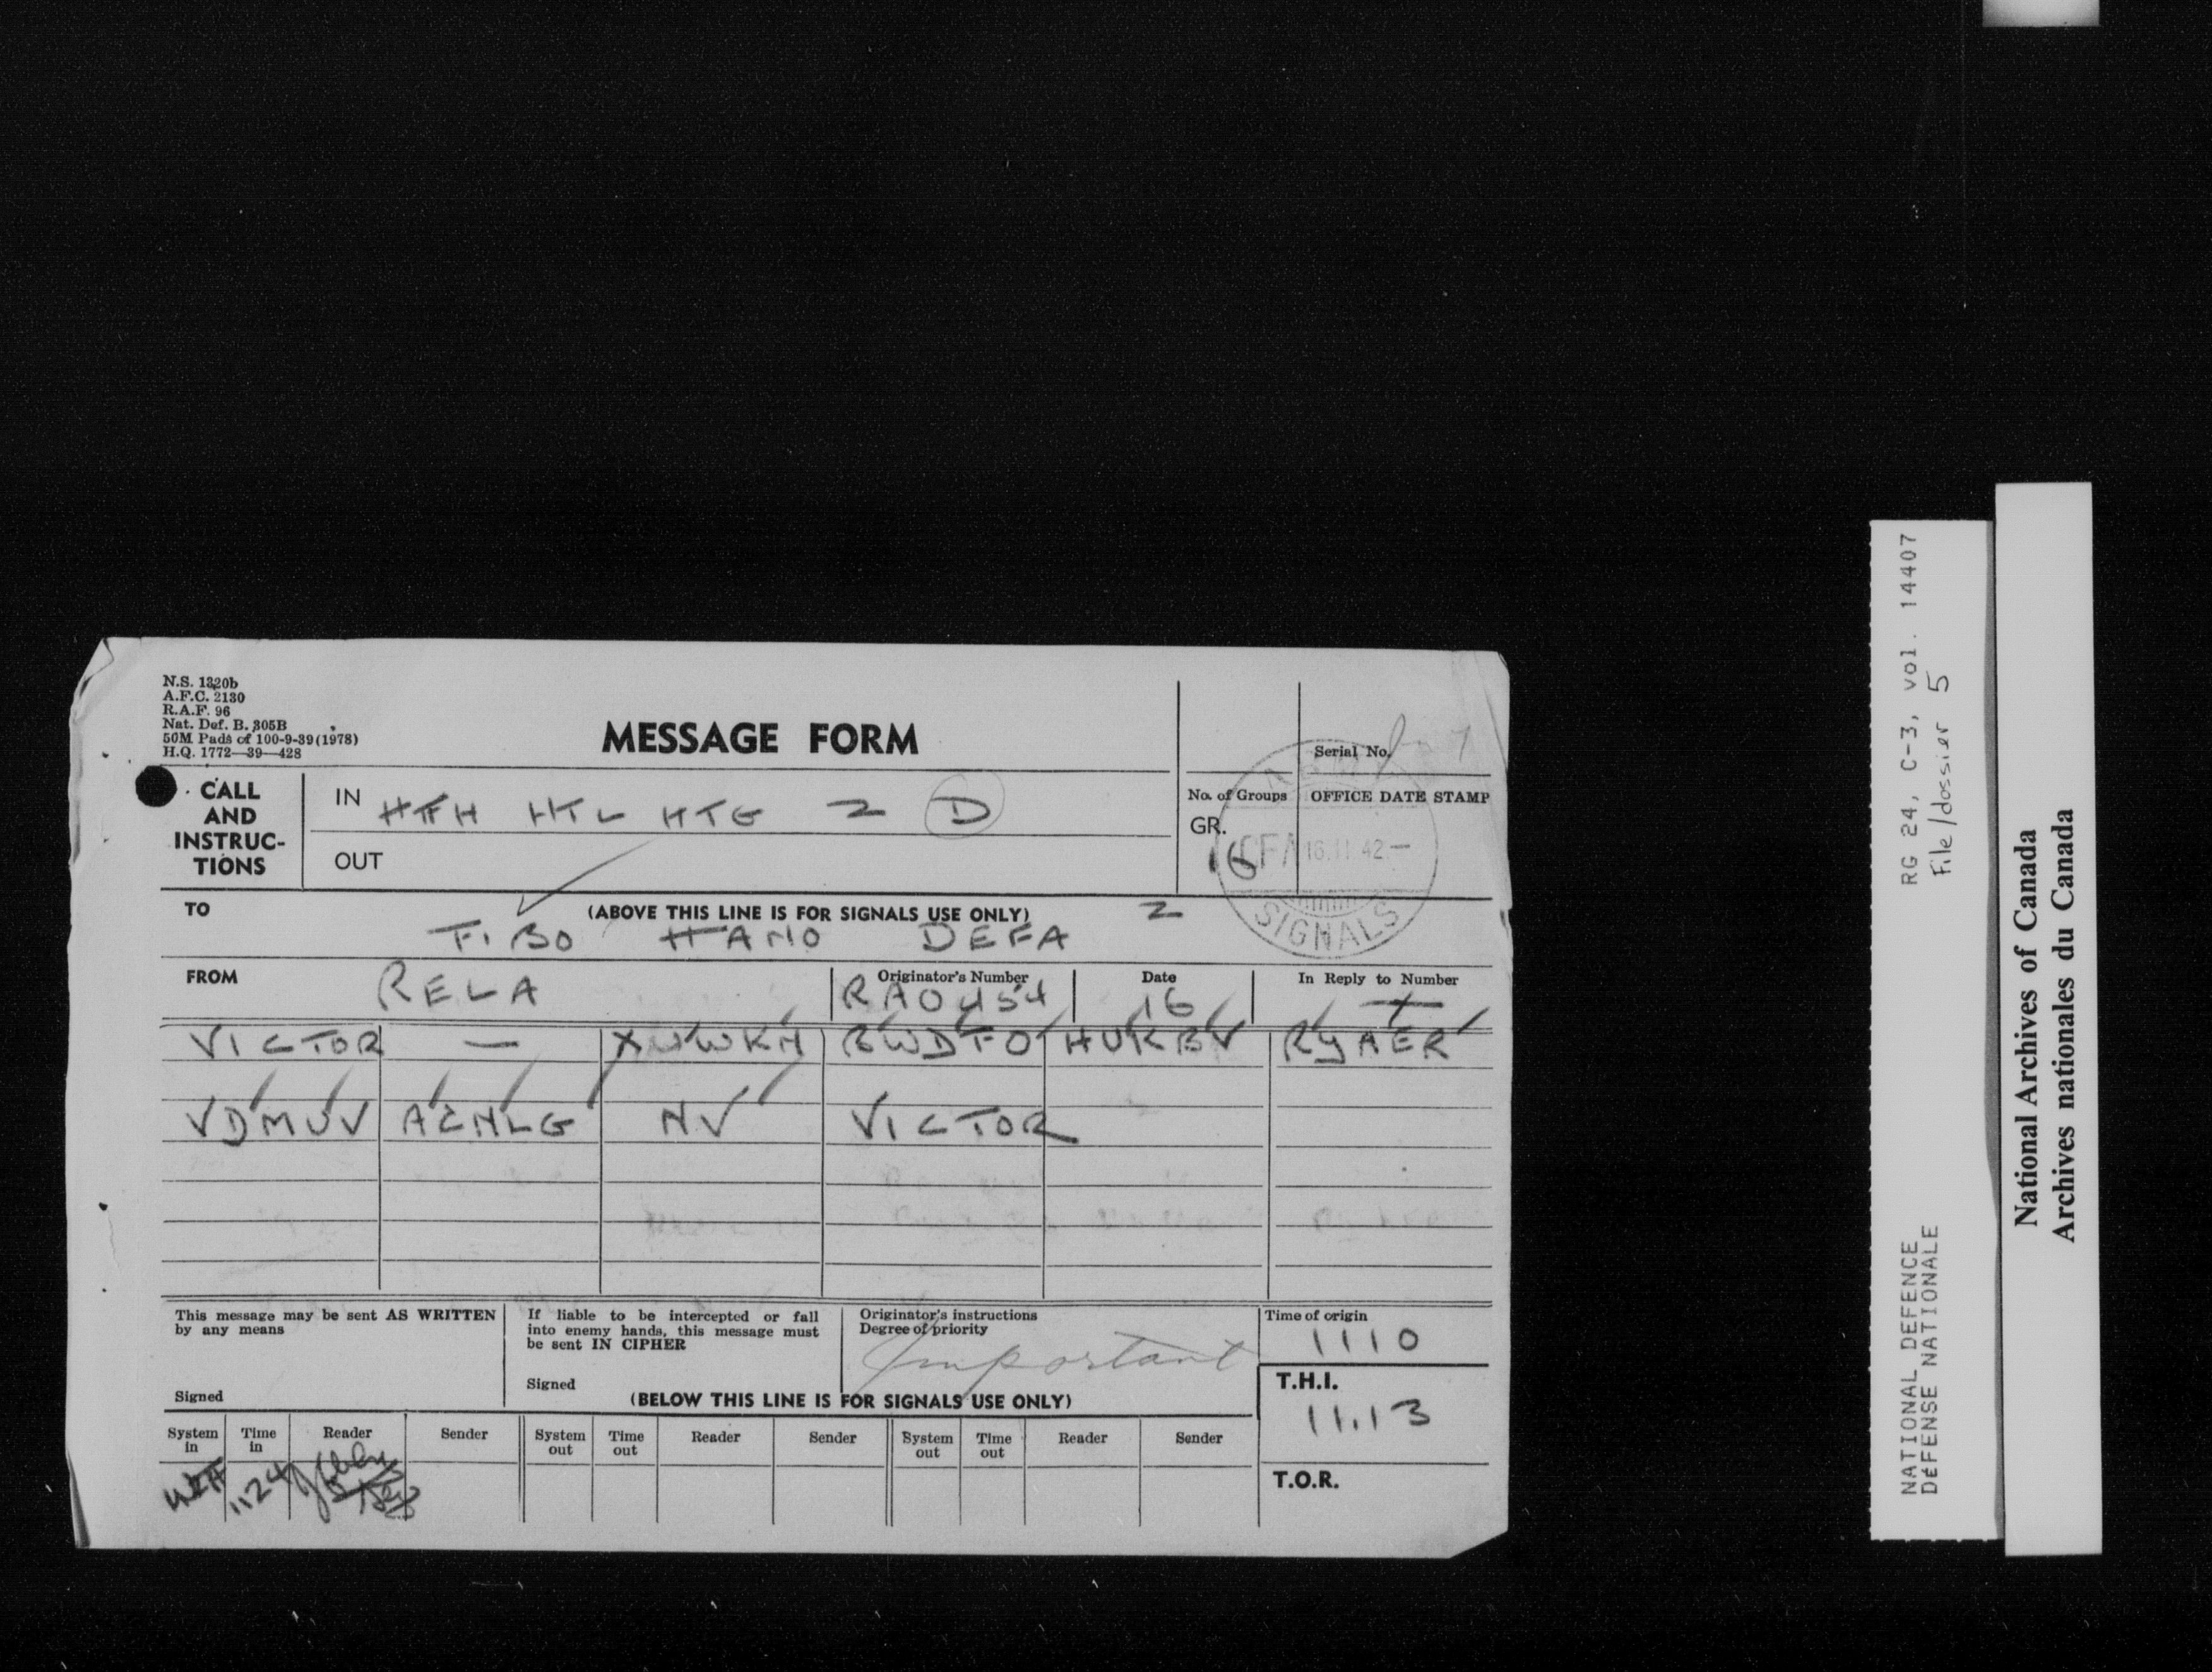 N.S. 1320b
A.F.C. 2130
R.A.F. 96
Nat. Def. B. 305B
50M Pads of 100-9-39 (1978)
H.Q. 1772—39—428
MESSAGE FORM
Serial No.
CALL AND INSTRUC-TIONS
IN HTH HTL HTG Z D
OUT
No. of Groups
GR. 16
OFFICE DATE STAMP
16.11.42
SIGNALS
TO
(ABOVE THIS LINE IS FOR SIGNALS USE ONLY) Z
TIBO HANO DEFA
FROM RELA
Originator's Number RA0454
Date 16
In Reply to Number
VICTOR — XWWKN BWDFO HUKBV RYAER
VDMUV ACNLG NV VICTOR
This message may be sent AS WRITTEN
by any means
Signed
If liable to be intercepted or fall
into enemy hands, this message must
be sent IN CIPHER
Signed
Originator's instructions
Degree of priority
Important
Time of origin
1110
(BELOW THIS LINE IS FOR SIGNALS USE ONLY)
T.H.I.
11.13
T.O.R.
System in Time in Reader Sender System out Time out Reader Sender System out Time out Reader Sender
1124
RG 24, C-3, vol. 14407
File/dossier 5
NATIONAL DEFENCE
DÉFENSE NATIONALE
National Archives of Canada
Archives nationales du Canada